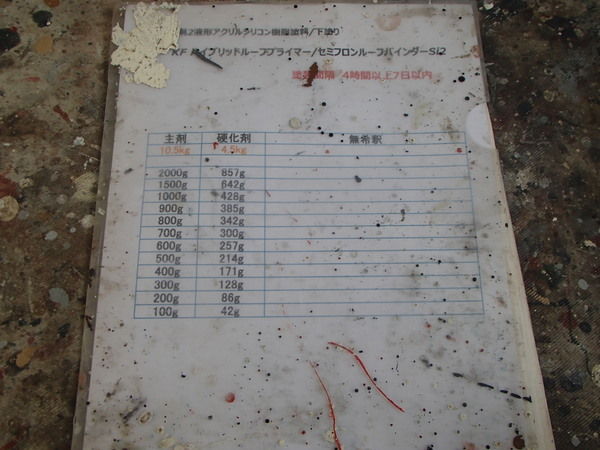 用2液形アクリルシリコン樹脂塗料/下塗り
KF ハイグリッドルーフプライマー/セミフロンルーフバインダーSi2
塗装間隔/4時間以上7日以内
主剤 硬化剤 無希釈
10.5kg 4.5kg
2000g 857g
1500g 642g
1000g 428g
900g 385g
800g 342g
700g 300g
600g 257g
500g 214g
400g 171g
300g 128g
200g 86g
100g 42g